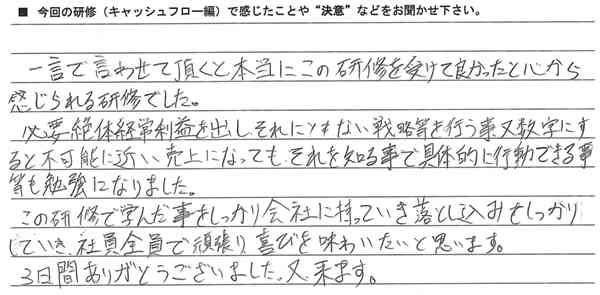 ■ 今回の研修（キャッシュフロー編）で感じたことや“決意”などをお聞かせ下さい。
一言で言わせて頂くと本当にこの研修を受けて良かったと心から
感じられる研修でした。
必要絶体経常利益を出し、それにともない戦略等を行う事又数字にす
ると不可能に近い売上になっても、それを知る事で具体的に行動できる事
等も勉強になりました。
この研修で学んだ事をしっかり会社に持っていき落とし込みをしっかり
していき、社員全員で頑張り喜びを味わいたいと思います。
3日間ありがとうございました。又、来ます。